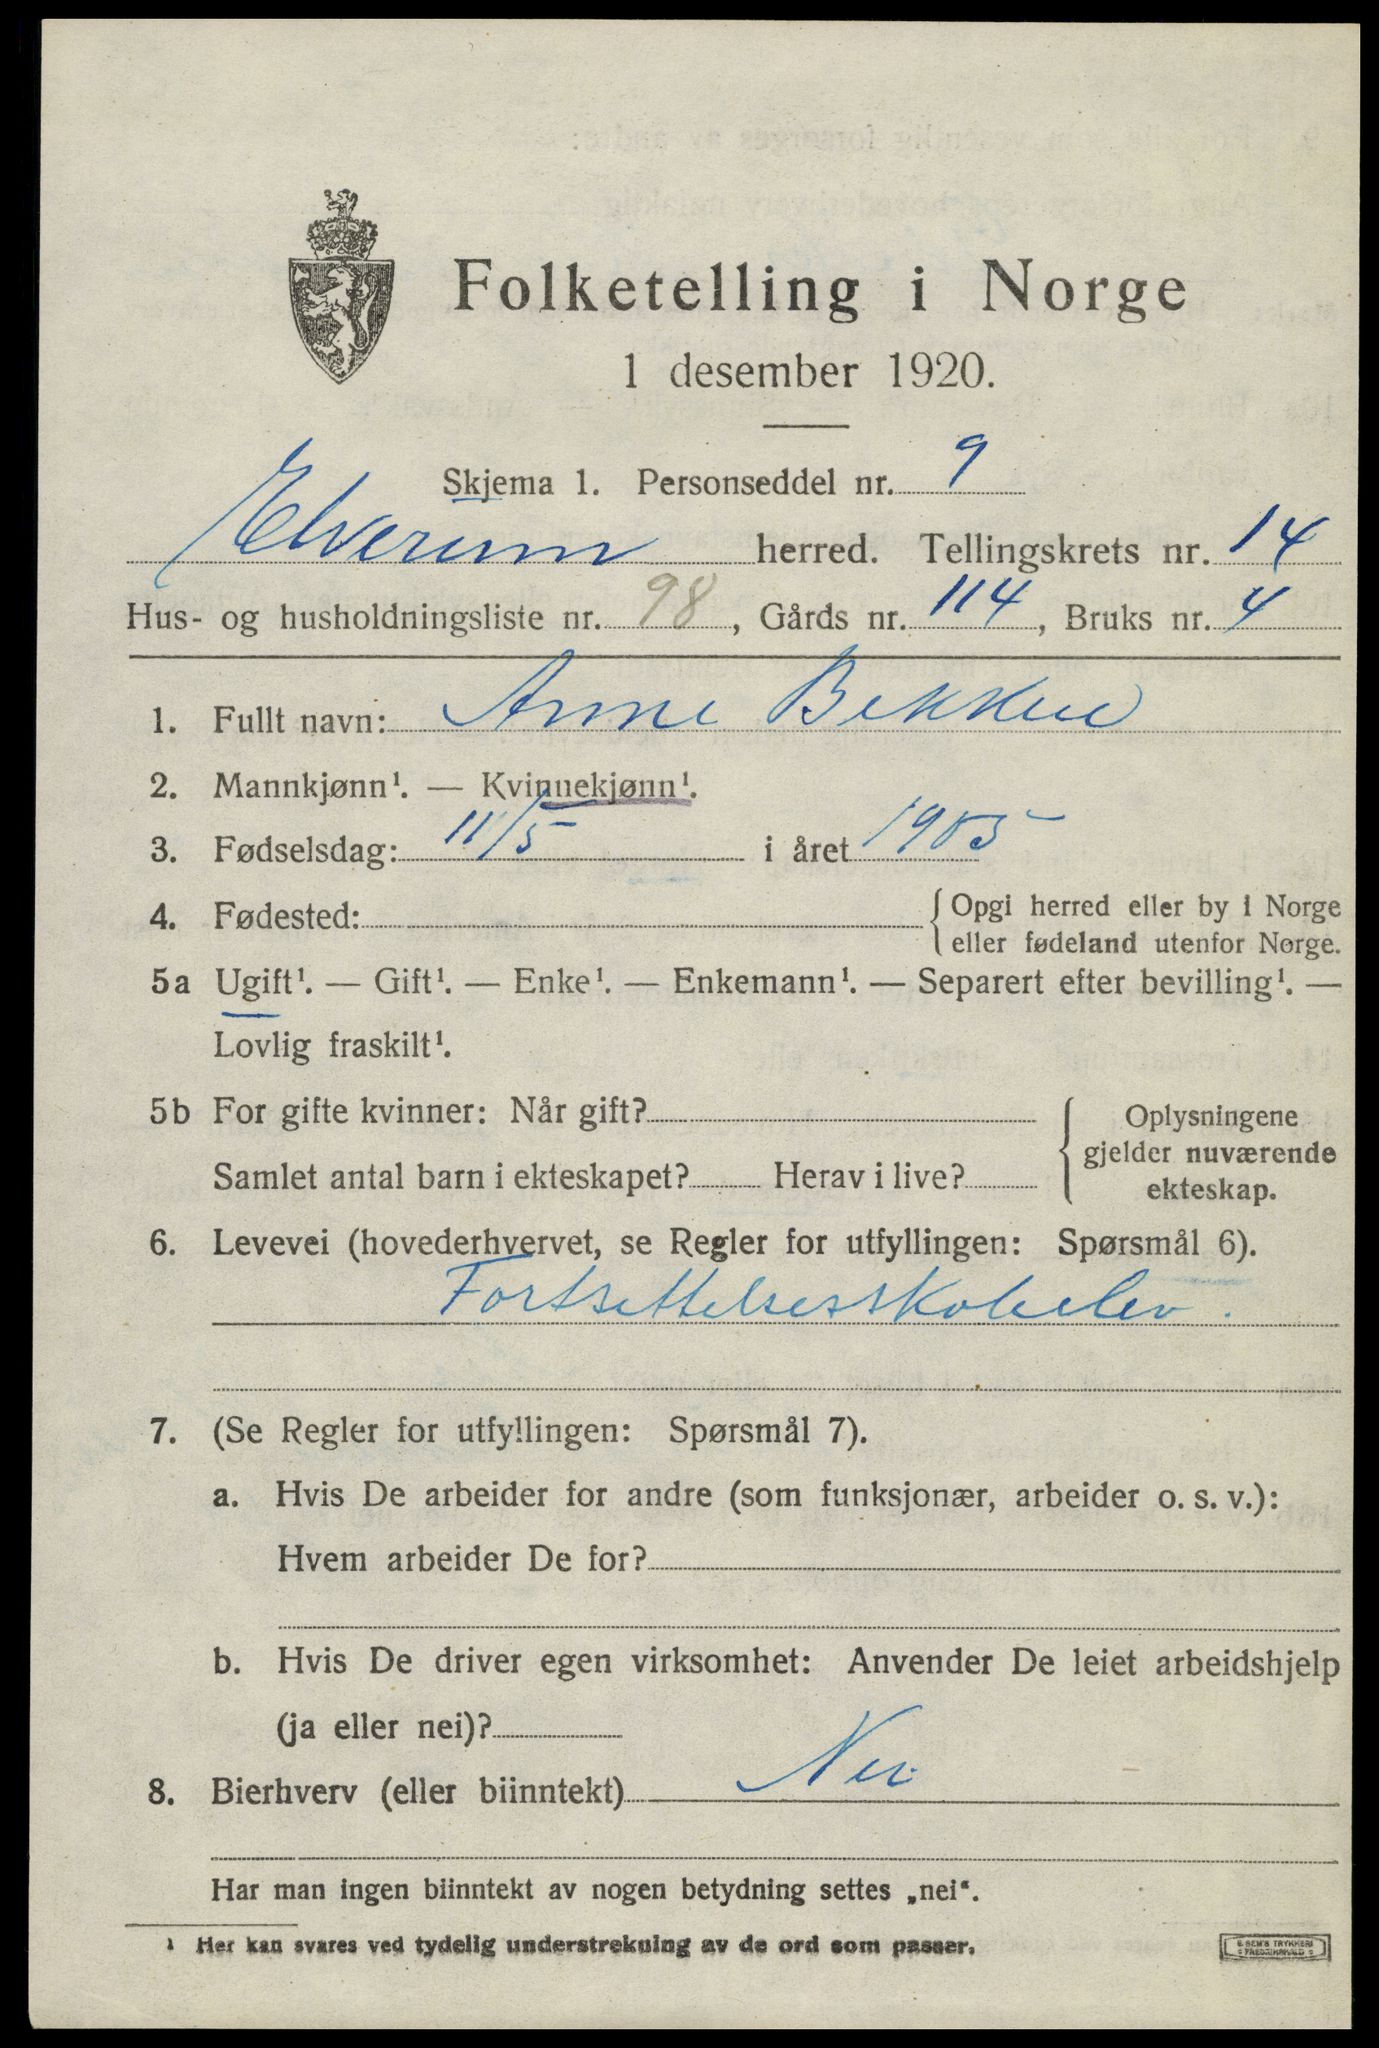 Folketelling i Norge
1 desember 1920.
Skjema 1. Personseddel nr. 9
Elverum herred. Tellingskrets nr. 14
Hus- og husholdningsliste nr. 98, Gårds nr. 114, Bruks nr. 4
1. Fullt navn: Anne Bekken
2. Mannkjønn¹. — Kvinnekjønn¹.
3. Fødselsdag: 11/5 i året 1905
4. Fødested: { Opgi herred eller by i Norge
eller fødeland utenfor Norge.
5a Ugift¹. — Gift¹. — Enke¹. — Enkemann¹. — Separert efter bevilling¹. —
Lovlig fraskilt¹.
5b For gifte kvinner: Når gift? { Oplysningene
gjelder nuværende
Samlet antal barn i ekteskapet? Herav i live?
ekteskap.
6. Levevei (hovederhvervet, se Regler for utfyllingen: Spørsmål 6).
Fortsettelsesskoleelev.
7. (Se Regler for utfyllingen: Spørsmål 7).
a. Hvis De arbeider for andre (som funksjonær, arbeider o. s. v.):
Hvem arbeider De for?
b. Hvis De driver egen virksomhet: Anvender De leiet arbeidshjelp
(ja eller nei)?
8. Bierhverv (eller biinntekt) Nei
Har man ingen biinntekt av nogen betydning settes „nei“.
¹ Her kan svares ved tydelig understrekning av de ord som passer.
E. SEM'S TRYKKERI
FREDRIKSHALD